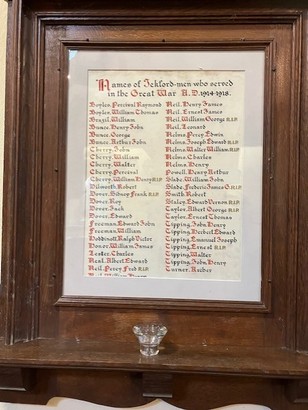 Names of Ickford-men who served
in the Great War A.D. 1914-1918.
Boyles, Percival Raymond
Boyles, William Thomas
Brazil, William
Bunce, Henry John
Bunce, George
Bunce, Arthur John
Cherry, John
Cherry, William
Cherry, Walter
Cherry, Percival
Cherry, William Henry R.I.P.
Dilworth, Robert
Dover, Sidney Frank R.I.P.
Dover, Roy
Dover, Jack
Dover, Edward
Freeman, Edward John
Freeman, William
Godding, Ralph Victor
Honor, William James
Lester, Charles
Neal, Albert Edward
Neil, Percy Fred R.I.P.
Neil, Henry James
Neil, Ernest James
Neil, William George R.I.P.
Neil, Leonard
Nelms, Percy Edwin
Nelms, Joseph Edward R.I.P.
Nelms, Walter William R.I.P.
Nelms, Charles
Nelms, Henry
Powell, Henry Arthur
Slade, William John
Slade, Frederic James G. R.I.P.
Smith, Robert
Staley, Edward Vernon R.I.P.
Taylor, Albert George R.I.P.
Taylor, Ernest Thomas
Tipping, John Henry
Tipping, Herbert Edward
Tipping, Emanuel Joseph
Tipping, Ernest R.I.P.
Tipping, Walter
Tipping, John Henry
Turner, Archer